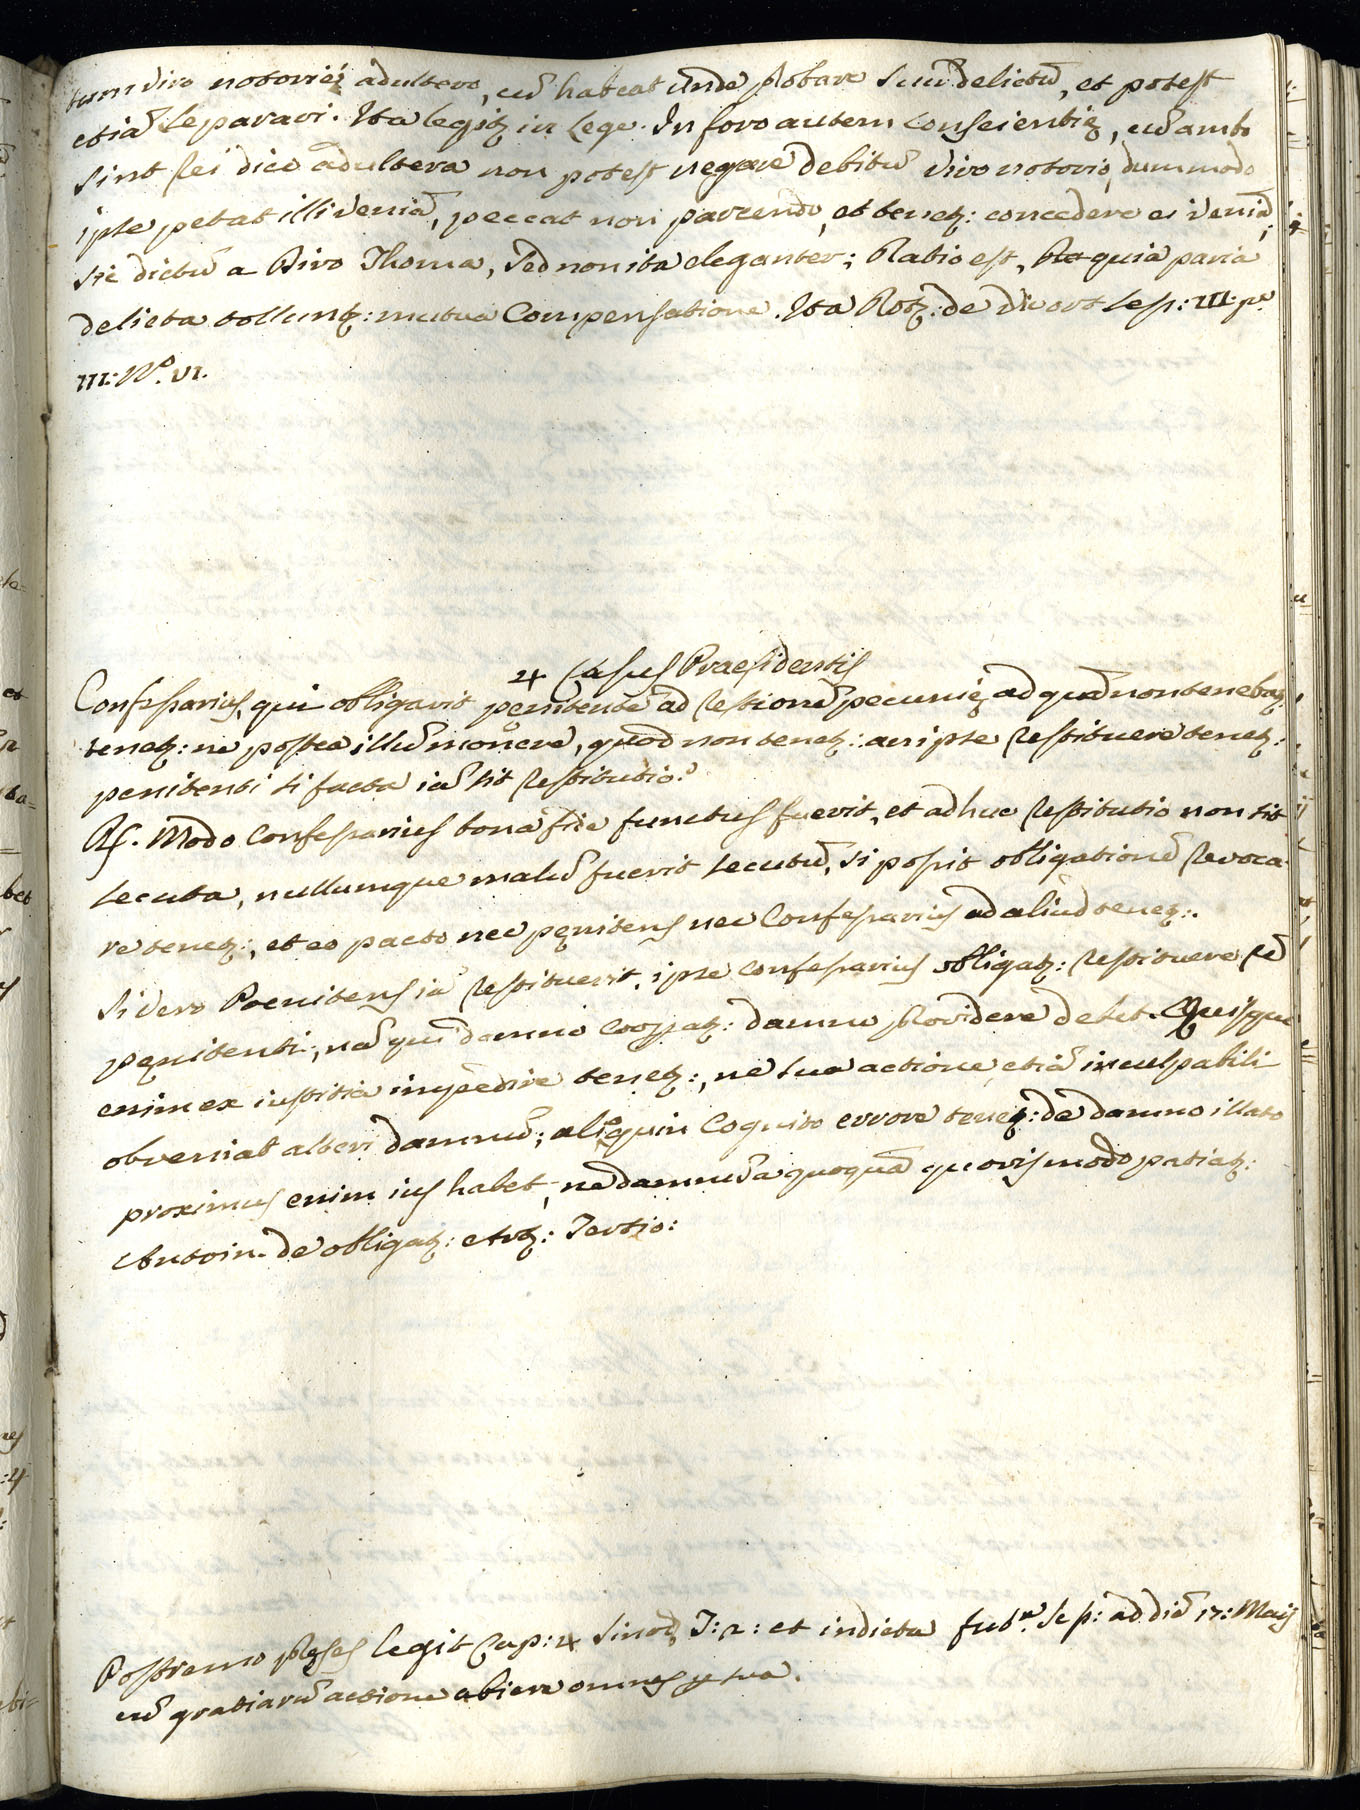 tum viro notorié adultero, cũ habeat unde probare suũ delictũ, et potest
etiã separari. Ita legitʒ in Lege. In foro autem Conscientię, cũ ambo
sint rei dico adultera non potest negare debitũ viro notorio, dummodo
ipse petat illi veniã, peccat non parcendo, et tenetʒ: concedere ei veniã,
sic dictũ a Divo Thoma, sed non ita eleganter; Ratio est, quia paria
delicta tolluntʒ: mutua Compensatione. Ita Rotʒ: de Divort Sess: III: pᵃ
III: Nº. VI.
4 Casus Praesidentis
Confessarius, qui obligavit penitentẽ ad restionẽ pecunię ad quã non tenebatʒ:
tenetʒ: ne postea illũ monere, quod non tenetʒ: an ipse restituere tenetʒ:
penitenti si facta iã sit restitutio?
Rs. Modo Confessarius bona fide functus fuerit, et ad huc restitutio non sit
secuta, nullumque malũ fuerit secutũ, si possit obligationẽ revoca
re tenetʒ:, et eo pacto nec pęnitens nec Confessarius ad aliud tenetʒ:.
Si vero Poenitens iã restituerit, ipse confessarius obligatʒ: restituere rẽ
pęnitenti, nã qui damno Coopatʒ: damno providere debet. Quisque
enim ex iustitia impedire tenetʒ:, ne sua actione, etiã inculpabili
obveniat alteri damnũ; alioquin Cognito errore tenetʒ: de damno illato
proximus enim ius habet, ne damnũ a quoquã quovis modo patiatʒ:
Antoin. de obligatʒ: et Artʒ: Tertio:
Postremo Pręses legit Cap: 4 Sinod, T: 2: et indicta fut.ᵃ Sess: ad diẽ 17: Maij
cũ gratiarũ actione abiere omnes p sua.